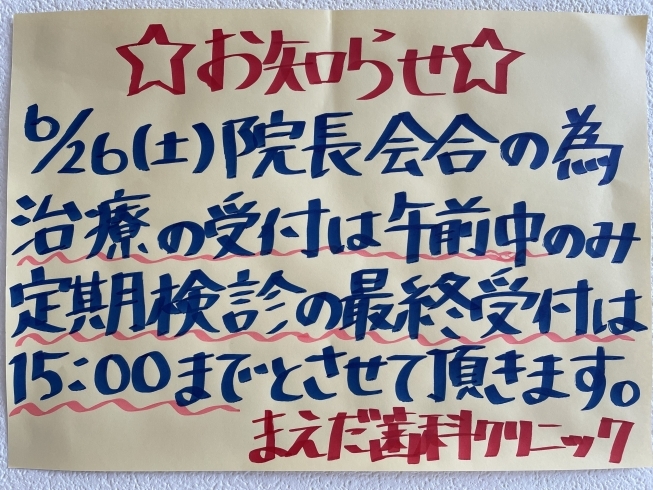 ☆お知らせ☆
6/26(土)院長会合の為
治療の受付は午前中のみ
定期検診の最終受付は
15:00までとさせて頂きます。
まえだ歯科クリニック